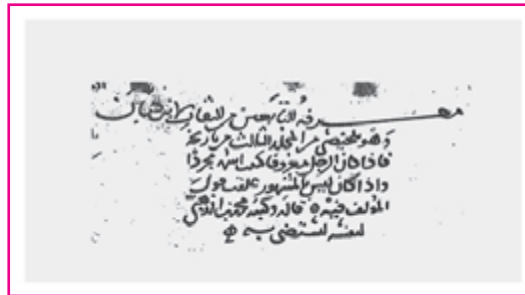 معرفة التابعين من الثقات لابن حبان
وهو ملخص من المجلد الثالث من تاريخه
فاذا كان الرجل معروفا كتبت اسمه مجردا
واذا كان ليس بالمشهور علقت قول
المؤلف فيه ه قاله وكتبه محمد بن الذهبي
لنفسه ليستضي به